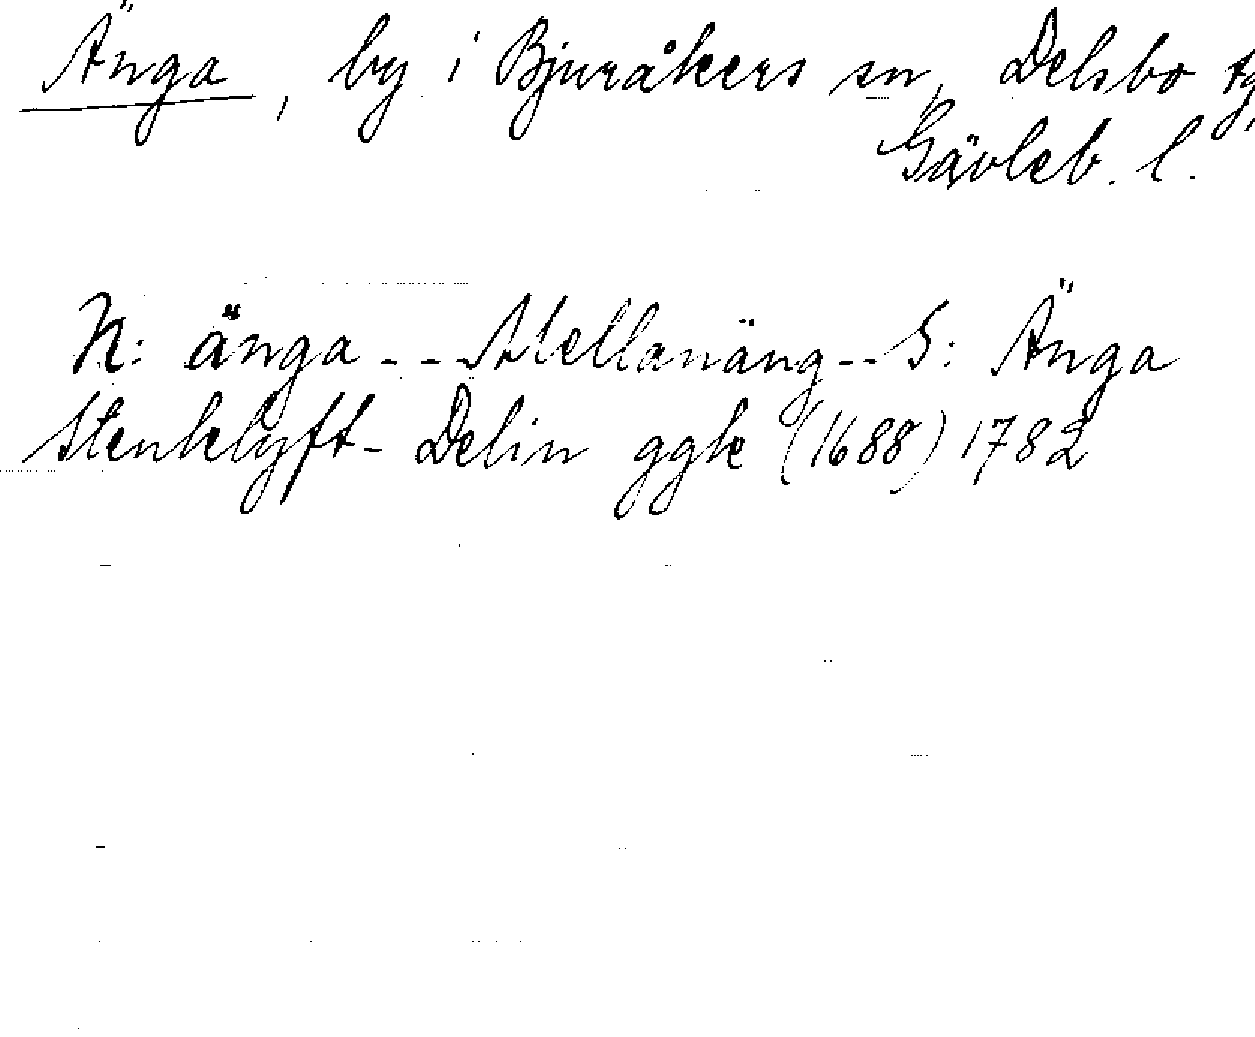 Änga, by i Bjuråkers sn, Delsbo tg,
Gävleb. l.
N: änga - - - Mellanäng - - S: Änga
Stenklyft - Delin ggk (1688) 1782